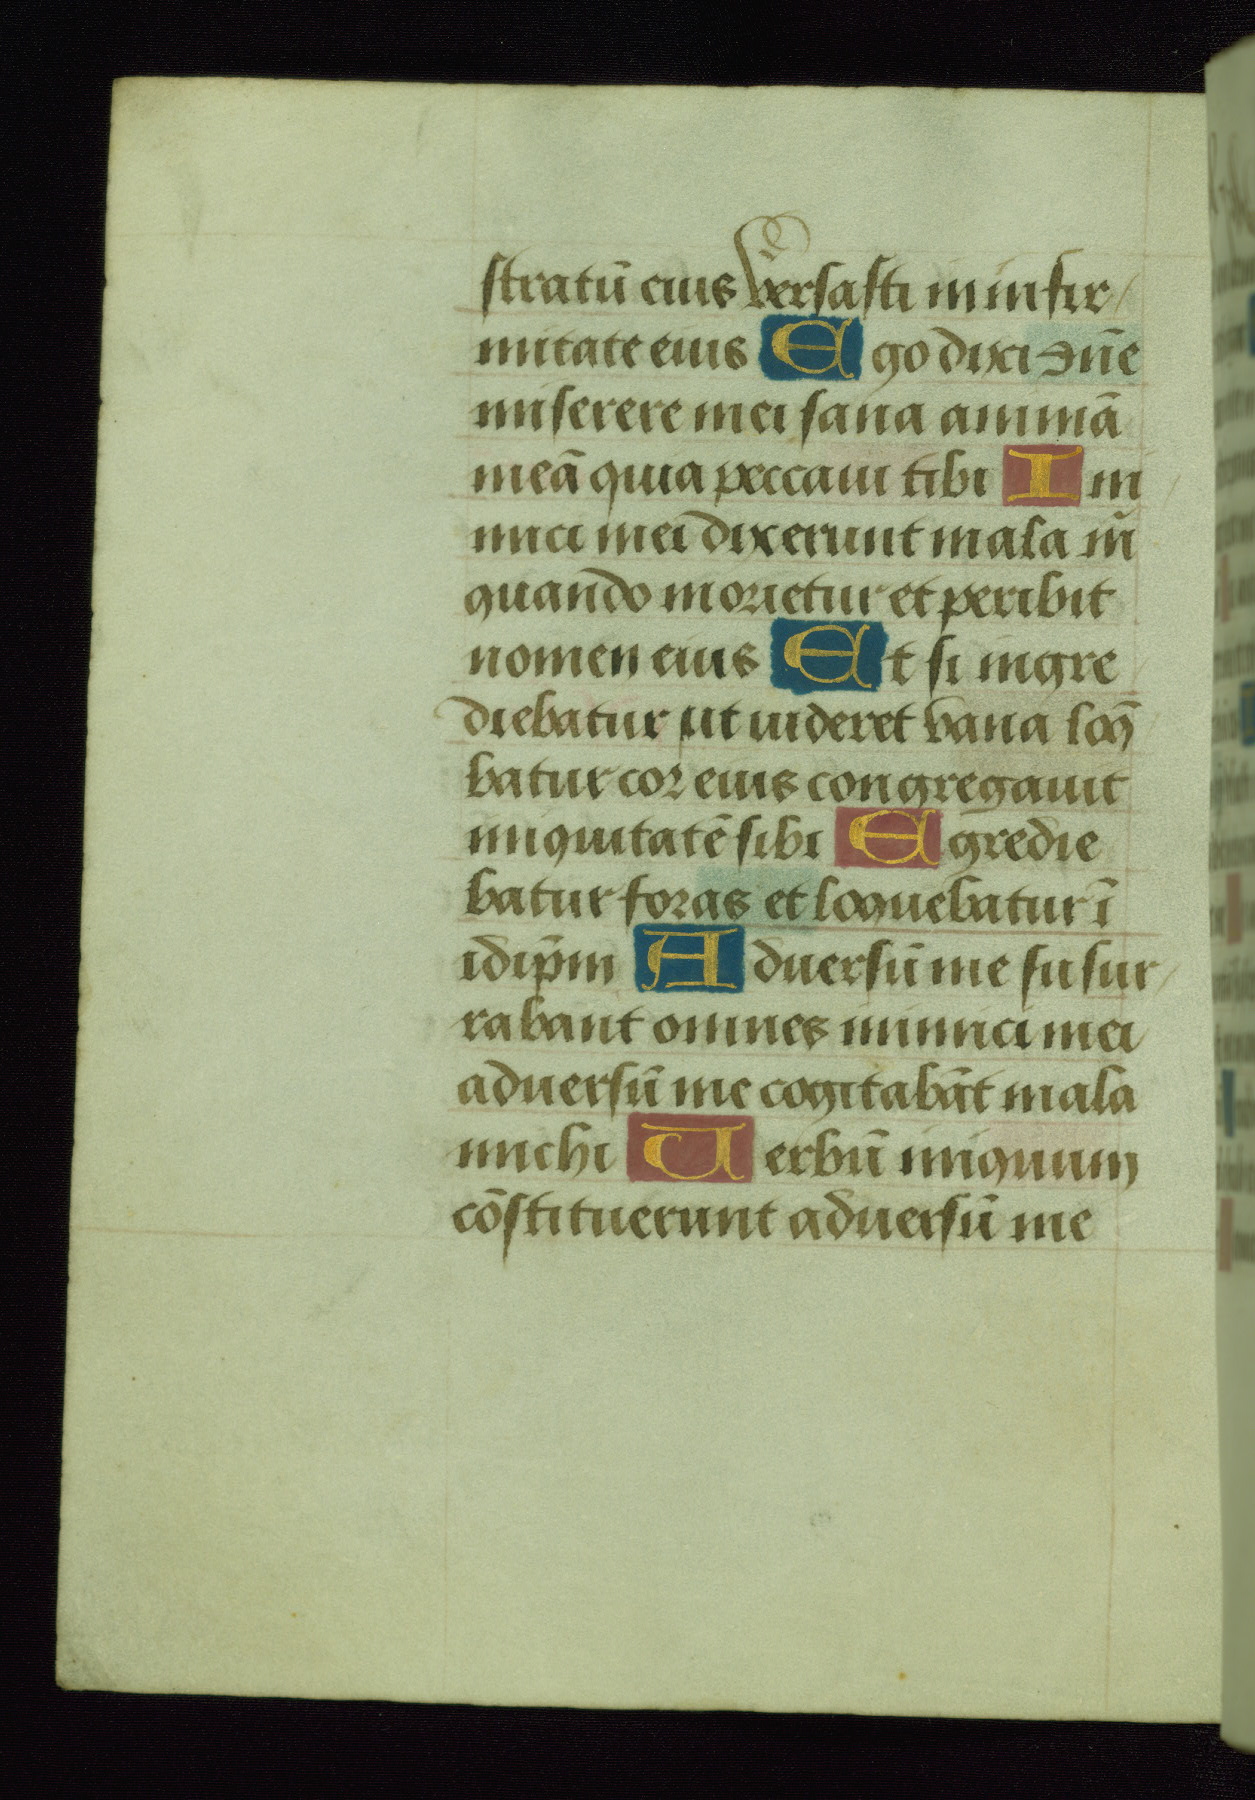 stratū eius versasti in infir
mitate eius Ego dixi dn̄e
miserere mei sana animā
meā quia peccaui tibi Ini
mici mei dixerunt mala m̄
quando morietur et peribit
nomen eius Et si ingre
diebatur ut uideret vana loq̄
batur cor eius congregauit
iniquitatē sibi Egredie
batur foras et loquebatur ī
idip̄m Aduersū me susur
rabant omnes inimici mei
aduersū me cogitabāt mala
michi Uerbū iniquum
cōstituerunt aduersū me